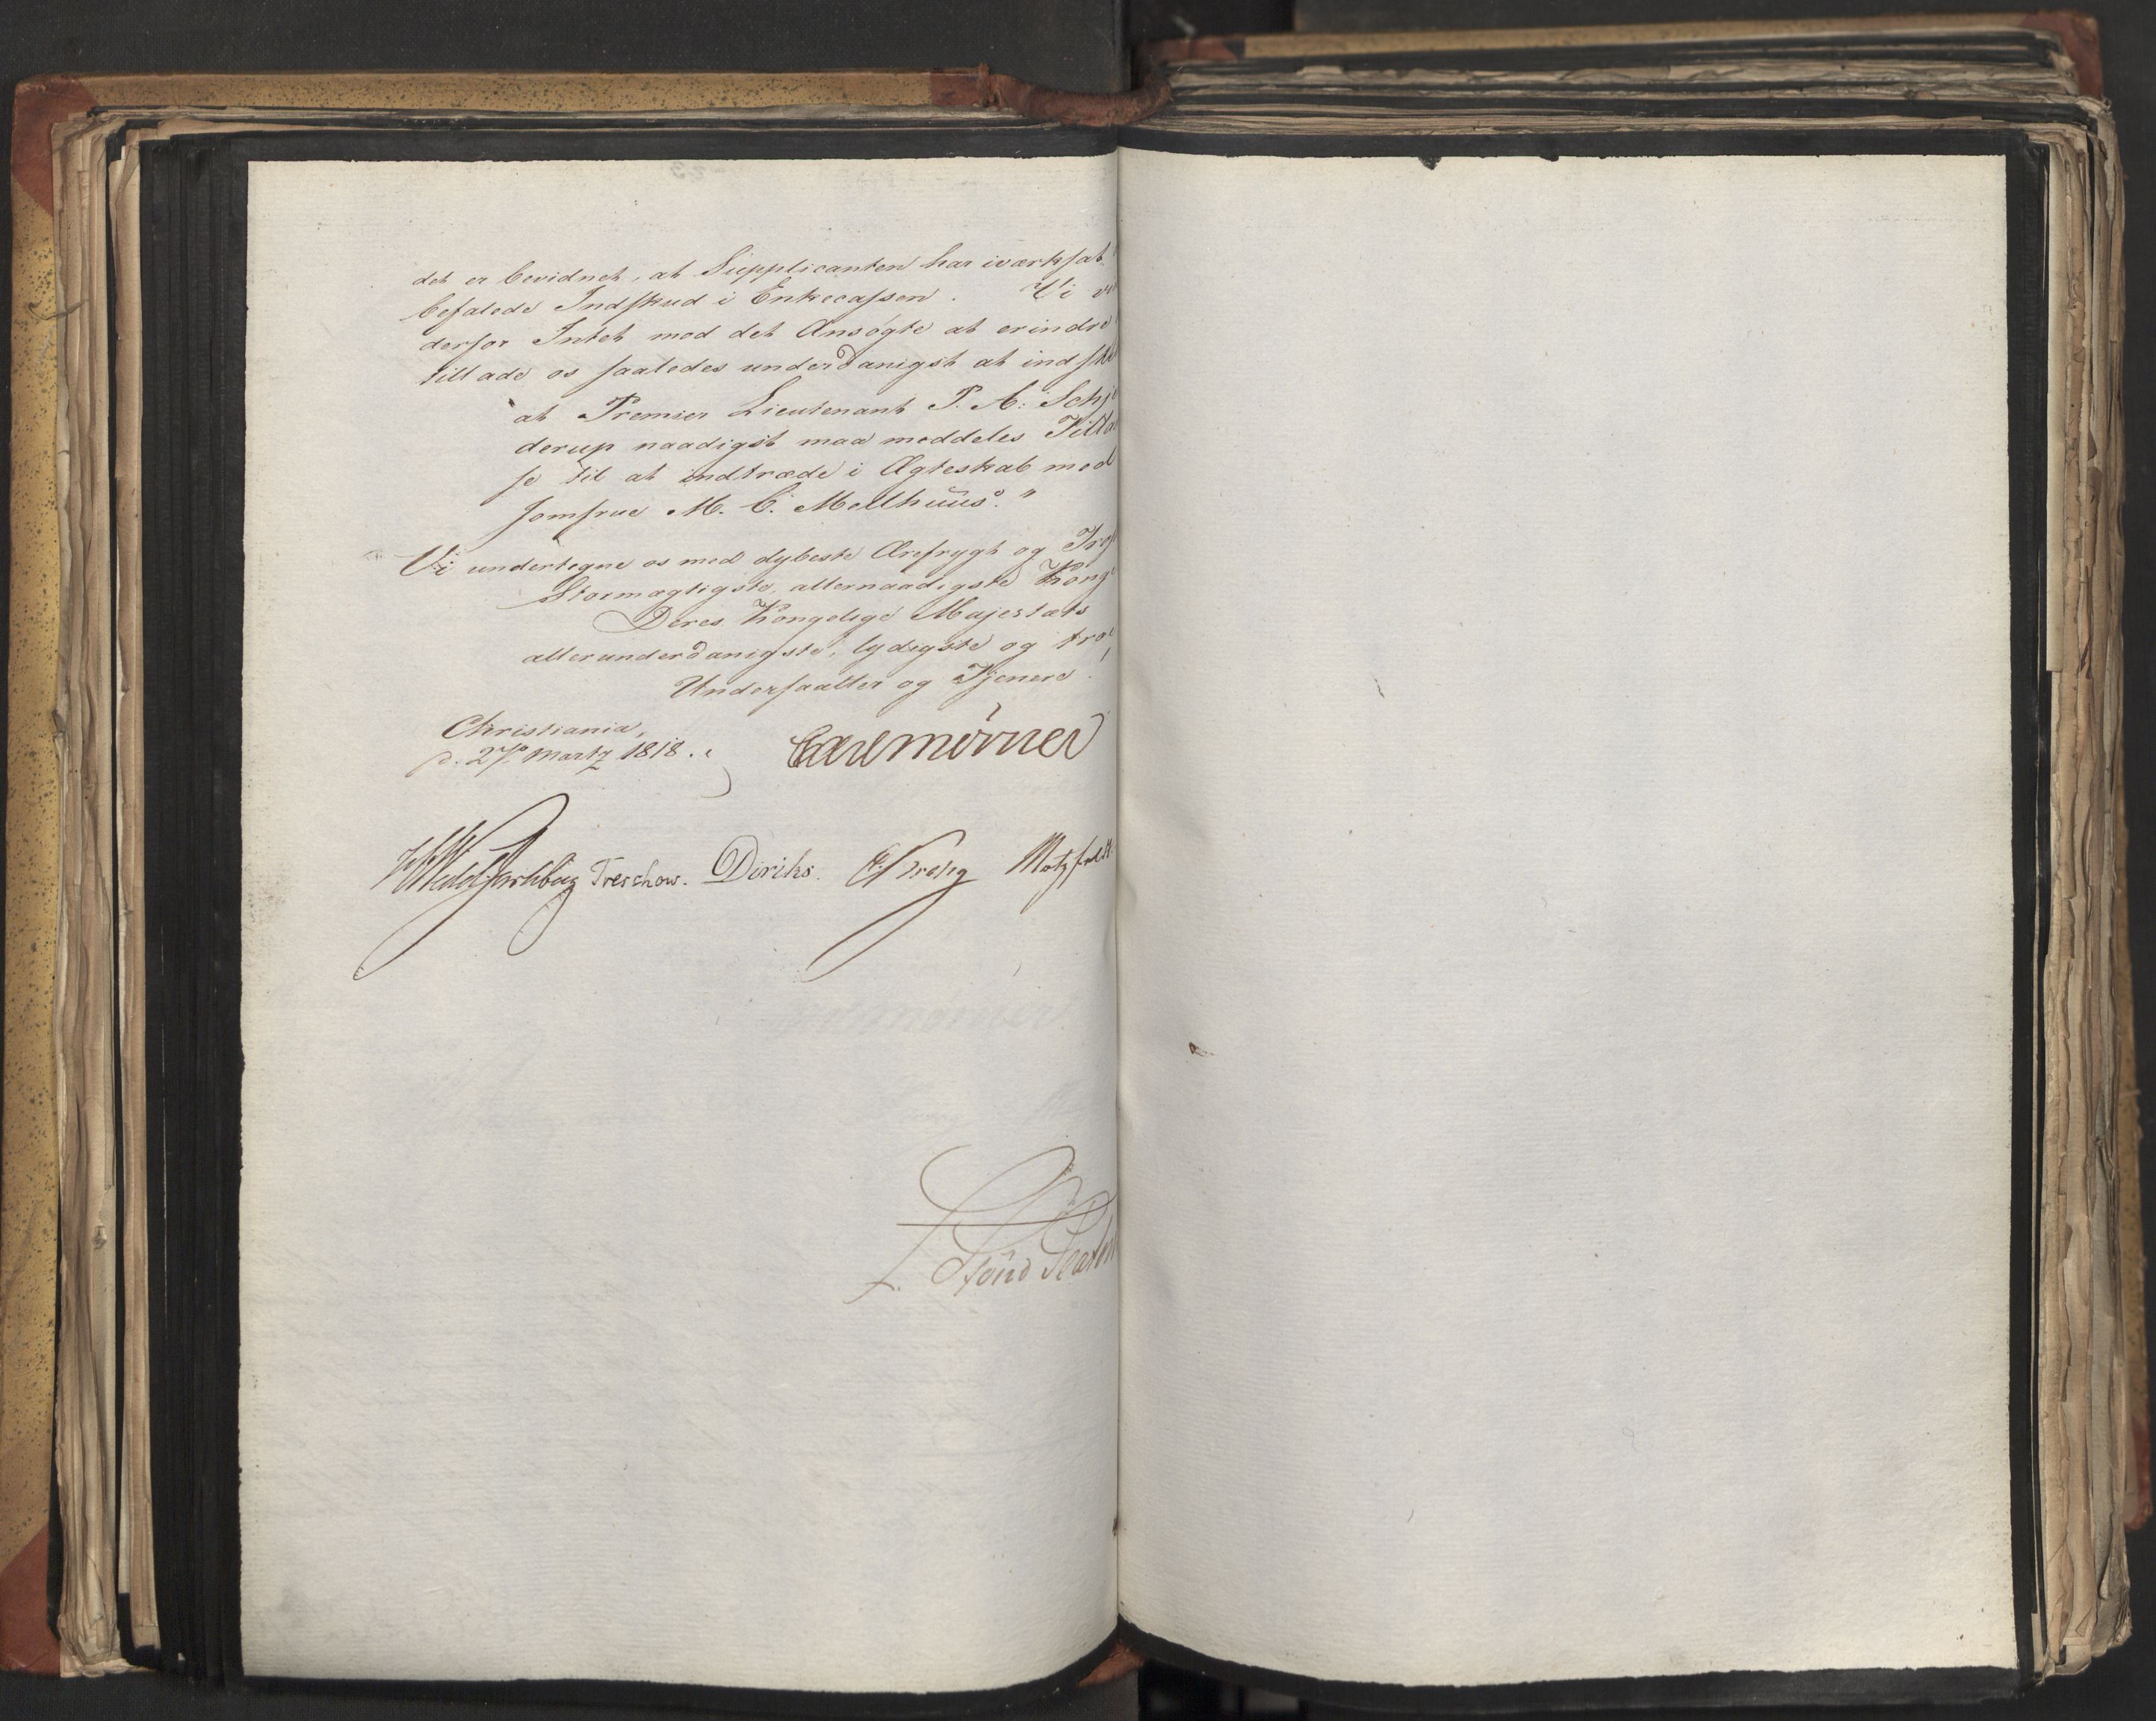 det er bevidnet, at Supplicanten har iværksat
befalede Indskud i Enkecassen. Vi
derfor Intet mod det Ansøgte at erindre
tillade os saaledes underdanigst at indstil
at Premier Lieutenant P. A. Schje
derup naadigst maa meddeles Tilla
se til at indtræde i Ægteskab med
Jomfrue M. C. Mellhuus."
Vi undertegne os med dybeste Ærefrygt og
Stormægtigste, allernaadigste Konge
Deres Kongelige Majestæts
allerunderdanigste, lydigste og troe
Undersaatter og Tjenere.
Christiania,
d. 27de Martz 1818.
Carl Mörner
Wedel Jarlsberg Treschow. Diriks. Motzfeldt.